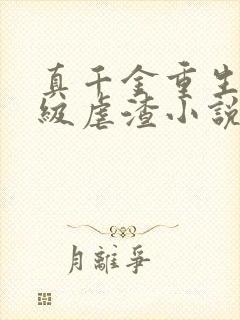 真千金重生
级虐渣小說
月離爭